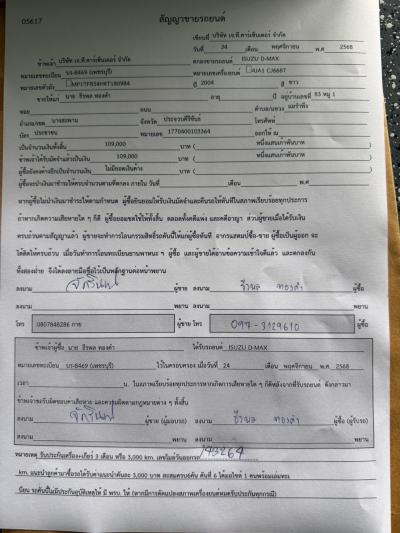 05617
สัญญาขายรถยนต์
เขียนที่ บริษัท เจ.ที.คาร์เซ็นเตอร์ จำกัด
วันที่ 24 เดือน พฤศจิกายน พ.ศ 2568
ข้าพเจ้า บริษัท เจ.ที.คาร์เซ็นเตอร์ จำกัด ตกลงขายรถยนต์ ISUZU D-MAX
หมายเลขทะเบียน บร-8469 (เพชรบุรี) หมายเลขเครื่องยนต์
หมายเลขตัวถัง ปี 2004 สี ขาว
ขายให้แก่ นาย ธีรพล ทองคำ อายุ ปี อยู่บ้านเลขที่ 83 หมู่ 1
ซอย ถนน ตำบล/แขวง แม่รำพึง
อำเภอ/เขต บางสะพาน จังหวัด ประจวบคีรีขันธ์ โทรศัพท์
บัตร ประชาชน หมายเลข 1770400103364 ออกให้ ณ
เป็นจำนวนเงินทั้งสิ้น 109,000 บาท ( หนึ่งแสนเก้าพันบาท
ข้าพเจ้าได้รับมัดจำแล้วเป็นเงิน 109,000 บาท ( หนึ่งแสนเก้าพันบาท
ผู้ซื้อยังคงค้างอีกเป็นจำนวนเงิน ไม่มียอดเงินค้าง บาท (
ผู้ซื้อจะนำเงินมาชำระให้ครบจำนวนตามที่ตกลง ภายใน วันที่ เดือน พ.ศ
หากผู้ซื้อไม่นำเงินมาชำระตามกำหนด ผู้ซื้อยินยอมให้ริบเงินมัดจำและคืนรถให้ทันทีในสภาพเรียบร้อยทุกประการ
ถ้าหากเกิดความเสียหายใด ๆ ก็ดี ผู้ซื้อยอมชดใช้ให้ทั้งสิ้น ตลอดทั้งคดีแพ่ง และคดีอาญา ส่วนผู้ขายเมื่อได้รับเงิน
ครบถ้วนตามสัญญาแล้ว ผู้ขายจะทำการโอนกรรมสิทธิ์รถคันนี้ให้แก่ผู้ซื้อทันที อากรแสตมป์ซื้อ-ขาย ผู้ซื้อเป็นผู้ออก จะ
ได้คิดให้ครบถ้วน เมื่อวันทำการโอนทะเบียนยานพาหนะ ฯ ผู้ซื้อ และผู้ขายได้อ่านข้อความเข้าใจดีแล้ว และตกลงกัน
ทั้งสองฝ่าย จึงได้ลงลายมือชื่อไว้เป็นหลักฐานต่อหน้าพยาน
ลงนาม ผู้ขาย ลงนาม ธีรพล ทองคำ ผู้ซื้อ
ลงนาม พยาน ลงนาม พยาน
โทร 0807848286 กาย ผู้ขาย โทร 097-3129610 ผู้ซื้อ
ข้าพเจ้าผู้ซื้อ นาย ธีรพล ทองคำ ได้รับรถยนต์ ISUZU D-MAX
หมายเลขทะเบียน บร-8469 (เพชรบุรี) ไว้ในครอบครอง เมื่อวันที่ 24 เดือน พฤศจิกายน พ.ศ 2568
เวลา น. ในสภาพเรียบร้อยทุกประการหากเกิดการเสียหายใด ๆ ก็ดีหลังจากที่รับรถยนต์ ดังกล่าวมา
ข้าพเจ้าขอรับผิดชอบความเสียหาย และควรรับผิดตามกฎหมายต่าง ๆ ทั้งสิ้น
ลงนาม ผู้ขาย (ผู้มอบรถ) ลงนาม ธีรพล ทองคำ ผู้ซื้อ (ผู้รับรถ)
ลงนาม พยาน ลงนาม พยาน
หมายเหตุ รับประกันเครื่อง+เกียร์ 3 เดือน หรือ 3,000 km. เลขไมล์วันออกรถ 193264
km. แนะนำลูกค้ามาซื้อรถได้รับค่าแนะนำคันละ 3,000 บาท สะสมครบ6คัน คันที่ 6 ได้
รถคันนี้ไม่มีประกันอุบัติเหตุให้ มี พรบ. ให้ (หากมีการดัดแปลงสภาพเครื่องยนต์หมดรับประกันทุกกรณี)